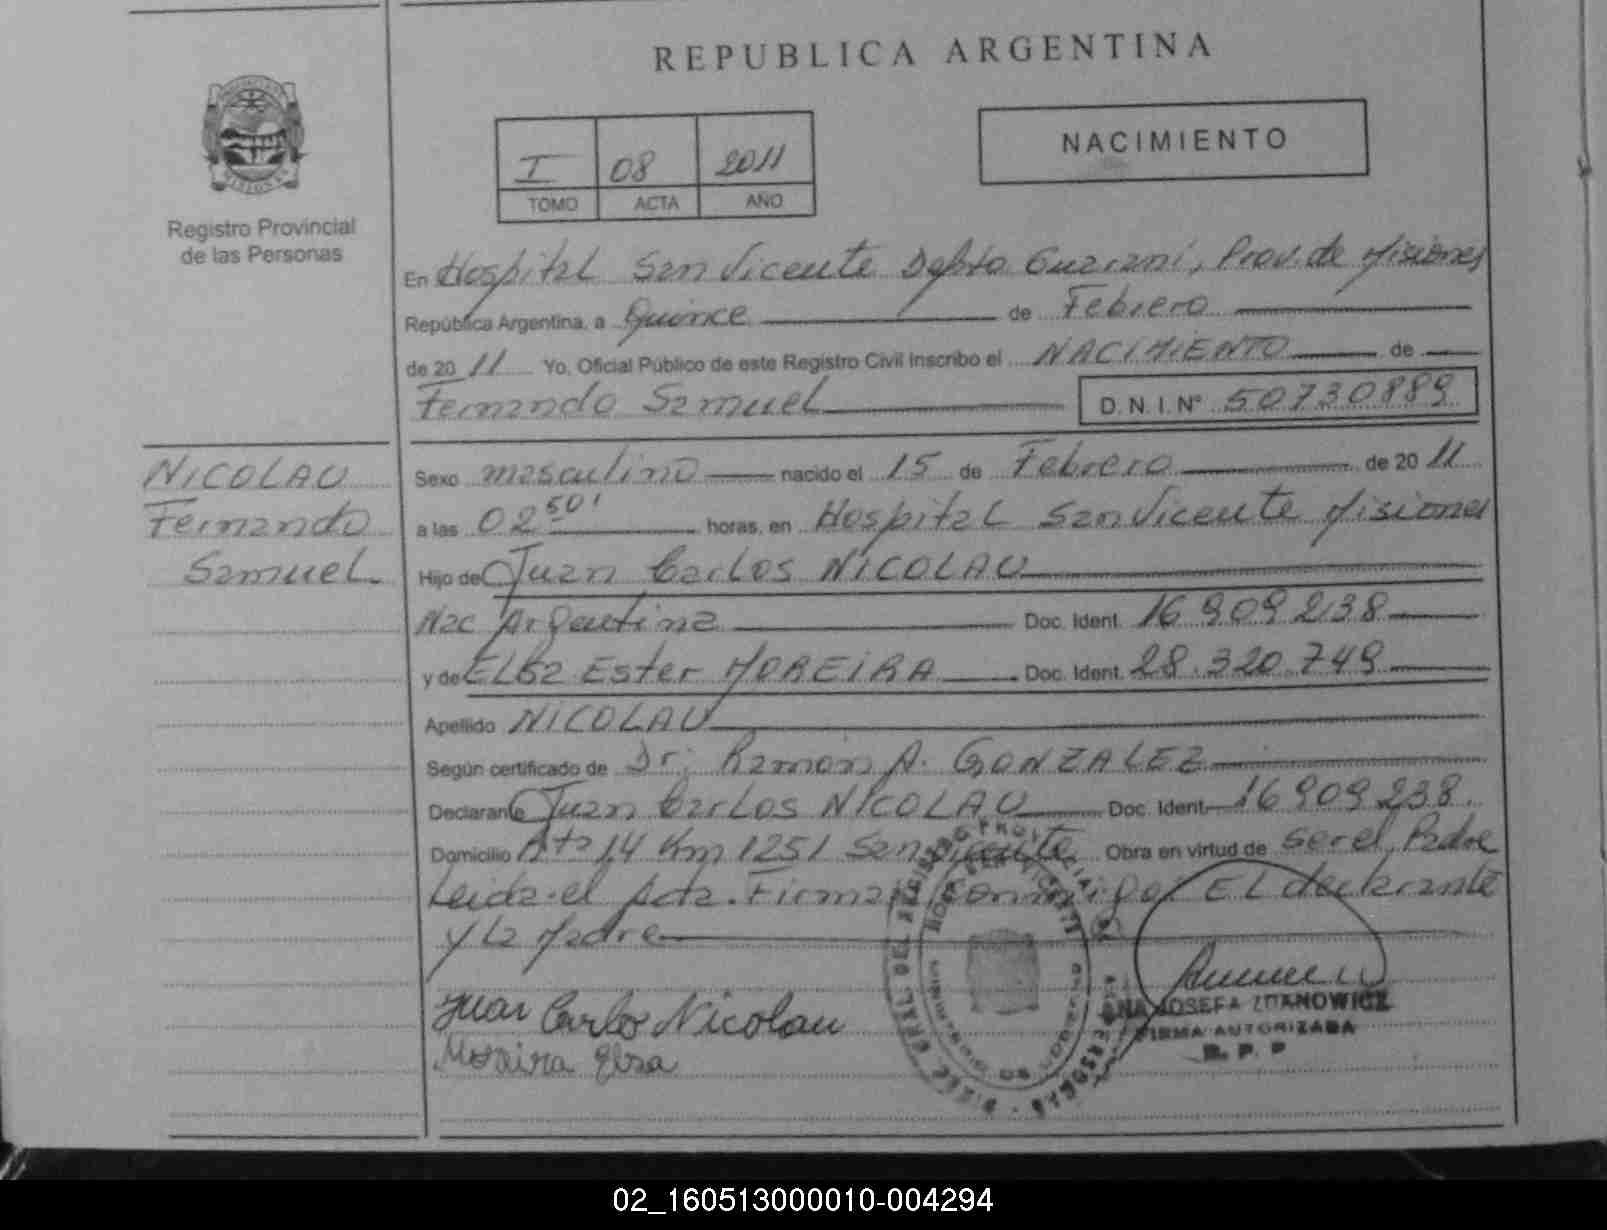 REPUBLICA ARGENTINA
NACIMIENTO
I 08 2011
TOMO ACTA AÑO
MISIONES
Registro Provincial
de las Personas
En Hospital San Vicente Depto Guarani, Prov. de Misiones
República Argentina, a Quince de Febrero
de 20 11 Yo, Oficial Público de este Registro Civil Inscribo el NACIMIENTO de
Fernando Samuel D.N.I. Nº 50730889
NICOLAU
Fernando
Samuel
Sexo masculino nacido el 15 de Febrero de 20 11
a las 02 50' horas, en Hospital San Vicente Misiones
Hijo de Juan Carlos NICOLAU
Nac Argentina Doc. Ident. 16 909 238
y de Elba Ester MOREIRA Doc. Ident. 28.320.749
Apellido NICOLAU
Según certificado de Dr. Ramón A. GONZALEZ
Declarante Juan Carlos NICOLAU Doc. Ident. 16 909 238.
Domicilio Rta 14 Km 1251 San Vicente Obra en virtud de ser el Padre
Leida el Acta. Firma conmigo: El declarante
y La Madre
Juan Carlos Nicolau
Moreira Elsa
ANA JOSEFA ZDANOWICZ
FIRMA AUTORIZADA
R. P. P
02_160513000010-004294